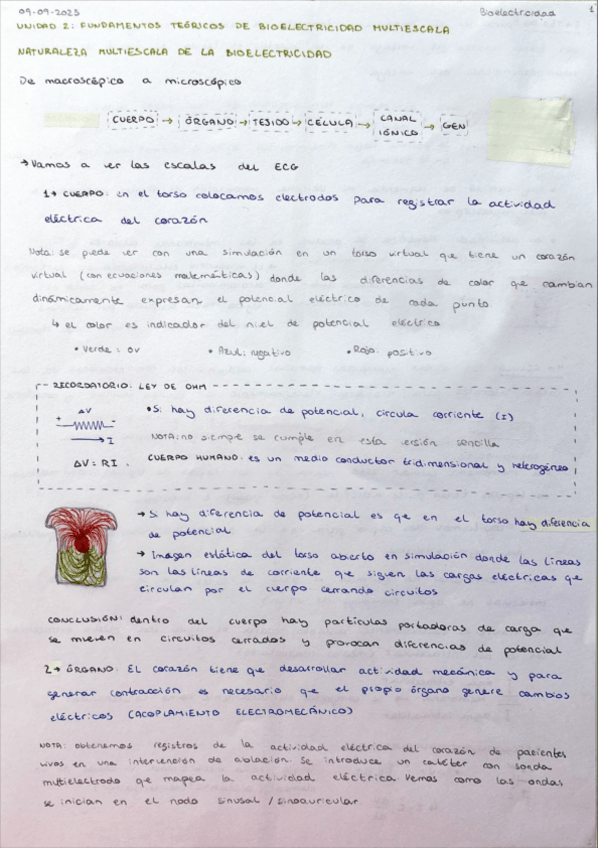 09-09-2025
Bioelectricidad
1
UNIDAD 2: FUNDAMENTOS TEÓRICOS DE BIOELECTRICIDAD MULTIESCALA
NATURALEZA MULTIESCALA DE LA BIOELECTRICIDAD
De macroscópico a microscópico
CUERPO → ÓRGANO → TEJIDO → CÉLULA → CANAL IÓNICO → GEN
→ Vamos a ver las escalas del ECG
1→ CUERPO: En el torso colocamos electrodos para registrar la actividad
eléctrica del corazón
Nota: se puede ver con una simulación en un torso virtual que tiene un corazón
virtual (con ecuaciones matemáticas) donde las diferencias de color que cambian
dinámicamente expresan el potencial eléctrico de cada punto
↳ el color es indicador del nivel de potencial eléctrico
• Verde: 0V • Azul: negativo • Rojo: positivo
RECORDATORIO: LEY DE OHM
ΔV
+ -
→ I
ΔV = RI
• Si hay diferencia de potencial, circula corriente (I)
NOTA: no siempre se cumple en esta versión sencilla
CUERPO HUMANO: es un medio conductor tridimensional y heterogéneo
→ Si hay diferencia de potencial es que en el torso hay diferencia
de potencial
→ Imagen estática del torso abierto en simulación donde las líneas
son las líneas de corriente que siguen las cargas eléctricas que
circulan por el cuerpo cerrando circuitos
CONCLUSIÓN: dentro del cuerpo hay partículas portadoras de carga que
se mueven en circuitos cerrados y provocan diferencias de potencial
2→ ÓRGANO: El corazón tiene que desarrollar actividad mecánica y para
generar contracción es necesario que el propio órgano genere cambios
eléctricos (ACOPLAMIENTO ELECTROMECÁNICO)
NOTA: obtenemos registros de la actividad eléctrica del corazón de pacientes
vivos en una intervención de ablación. Se introduce un catéter con sonda
multielectrodo que mapea la actividad eléctrica. Vemos como las ondas
se inician en el nodo sinusal / sinoauricular